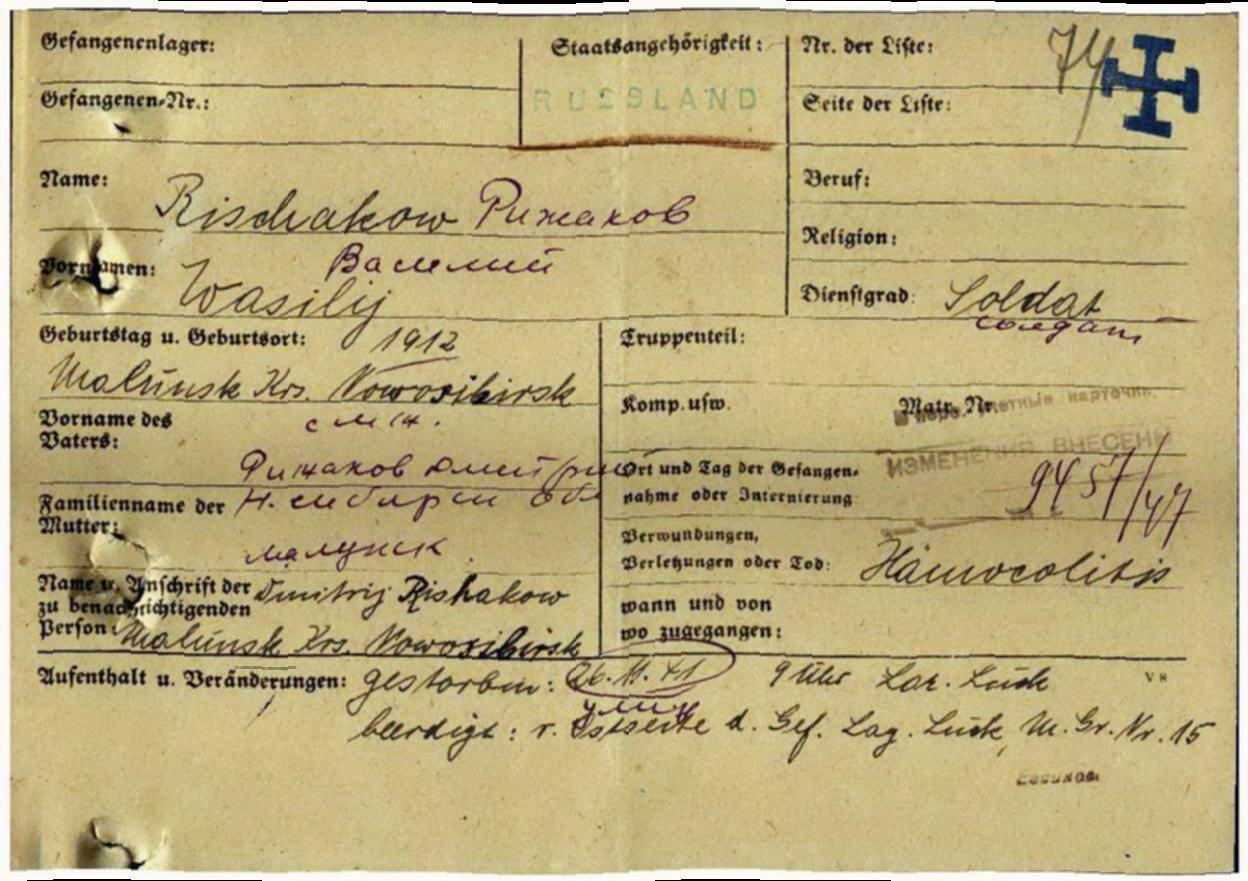 Gefangenenlager:
Staatsangehörigkeit:
Nr. der Liste:
74
Gefangenen-Nr.:
RUSSLAND
Seite der Liste:
Name: Rischakow Рижаков
Beruf:
Religion:
Vornamen: Василий
Wasilij
Dienstgrad: Soldat
солдат
Geburtstag u. Geburtsort: 1912
Malunsk Krs. Nowosibirsk
Truppenteil:
Komp. usw.
Matr. Nr.
учетные карточк.
ИЗМЕНЕНИЯ ВНЕСЕНЫ
Vorname des
Vaters:
см. н.
Рижаков Дмитрий
Ort und Tag der Gefangen-
nahme oder Internierung
9457/47
Familienname der
Mutter:
Н. сибирск обл
малунск
Verwundungen,
Verletzungen oder Tod: Hämocolitis
Name u. Anschrift der
zu benachrichtigenden
Person:
Dmitrij Rishakow
Malunsk Krs. Nowosibirsk
wann und von
wo zugegangen:
Aufenthalt u. Veränderungen: gestorben: 26.11.41 9 Uhr Laz. Luck
V 8
умир
beerdigt: v. Ostseite d. Gef. Lag. Luck, M. Gr. Nr. 15